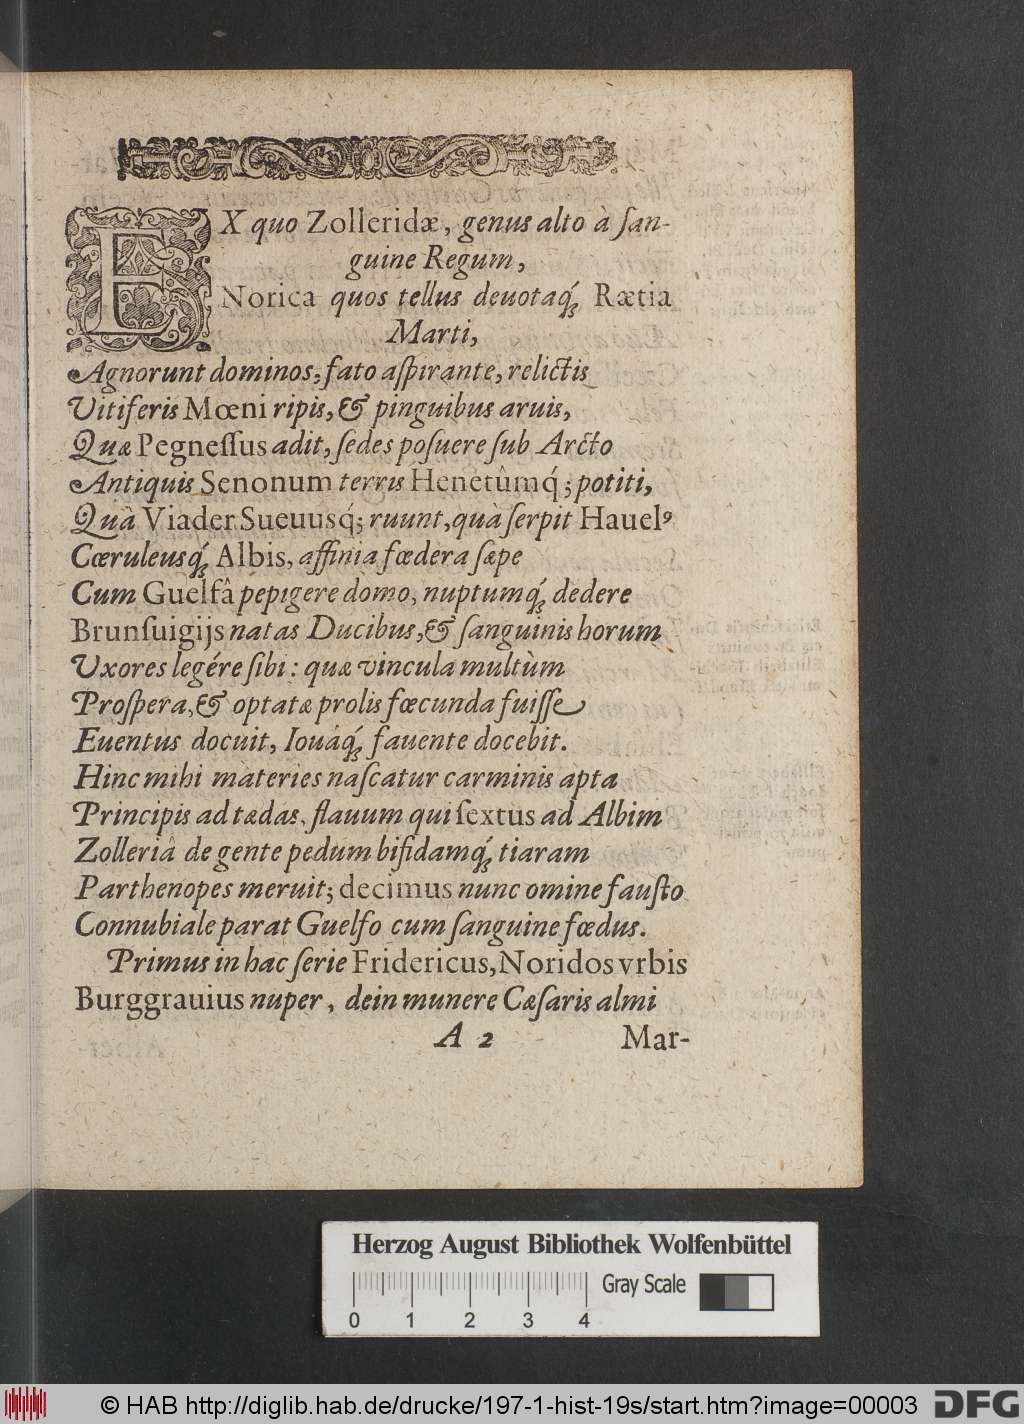 EX quo Zolleridæ, genus alto à ſan-
guine Regum,
Norica quos tellus deuotaq́; Rætia
Marti,
Agnorunt dominos, fato aſpirante, relictis
Vitiferis Mœni ripis, & pinguibus aruis,
Quæ Pegneſſus adit, ſedes poſuere ſub Arcto
Antiquis Senonum terris Henetûmq́; potiti,
Quà Viader Sueuusq́; ruunt, quà ſerpit Hauelꝰ
Cœruleusq́; Albis, affinia fœdera ſæpe
Cum Guelfâ pepigere domo, nuptumq́; dedere
Brunſuigijs natas Ducibus, & ſanguinis horum
Vxores legére ſibi: quæ vincula multùm
Proſpera, & optatæ prolis fœcunda fuiſſe
Euentus docuit, Iouáq́; fauente docebit.
Hinc mihi materies naſcatur carminis apta
Principis ad tædas, flauum qui ſextus ad Albim
Zolleriâ de gente pedum bifidamq́; tiaram
Parthenopes meruit; decimus nunc omine fauſto
Connubiale parat Guelfo cum ſanguine fœdus.
Primus in hac ſerie Fridericus, Noridos vrbis
Burggrauius nuper, dein munere Cæſaris almi
A 2 Mar-
Herzog August Bibliothek Wolfenbüttel
Gray Scale
0 1 2 3 4
© HAB http://diglib.hab.de/drucke/197-1-hist-19s/start.htm?image=00003 DFG